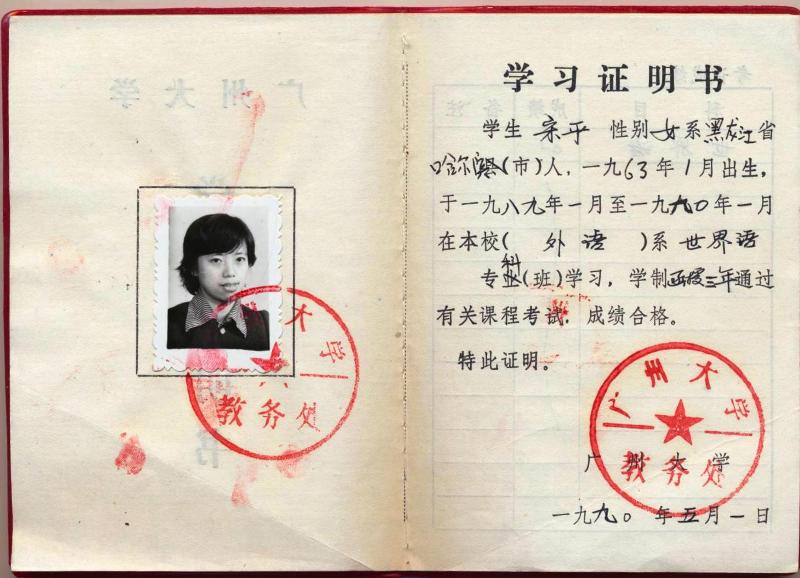 学习证明书
学生 宋平 性别 女 系 黑龙江 省
哈尔滨(市)人，一九63年1月出生，
于一九八九年一月至一九九〇年一月
在本校( 外语 )系 世界语
专业科(班)学习，学制函授三年通过
有关课程考试，成绩合格。
特此证明。
广州大学
教务处
广州大学
教务处
广州大学
一九九〇年五月一日